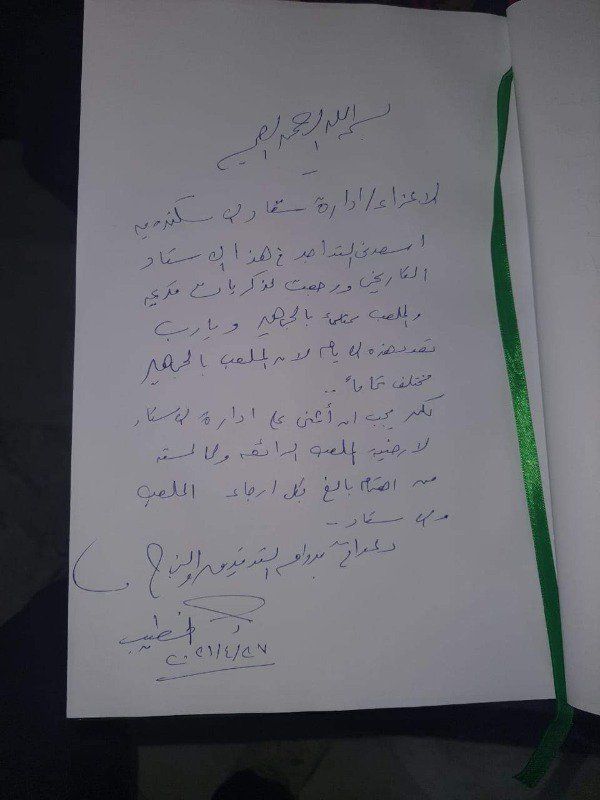 بسم الله الرحمن الرحيم
الاعزاء/ ادارة ستاد الاسكندريه
اسعدنى التواجد فى هذا الاستاد
التاريخى ورجعت لذكريات قديمه
والملعب ممتلئ بالجماهير ويارب
تعود هذه الايام لان الملعب بالجماهير
مختلف تماماً ..
لكن يجب ان أثنى على ادارة الاستاد
لارضية الملعب الرائعه ولما لمسته
من اهتمام بالغ بكل ارجاء الملعب
والاستاد ..
دعواتى بدوام التوفيق والنجاح
الخطيب
٢٠٢١/٤/٢٧